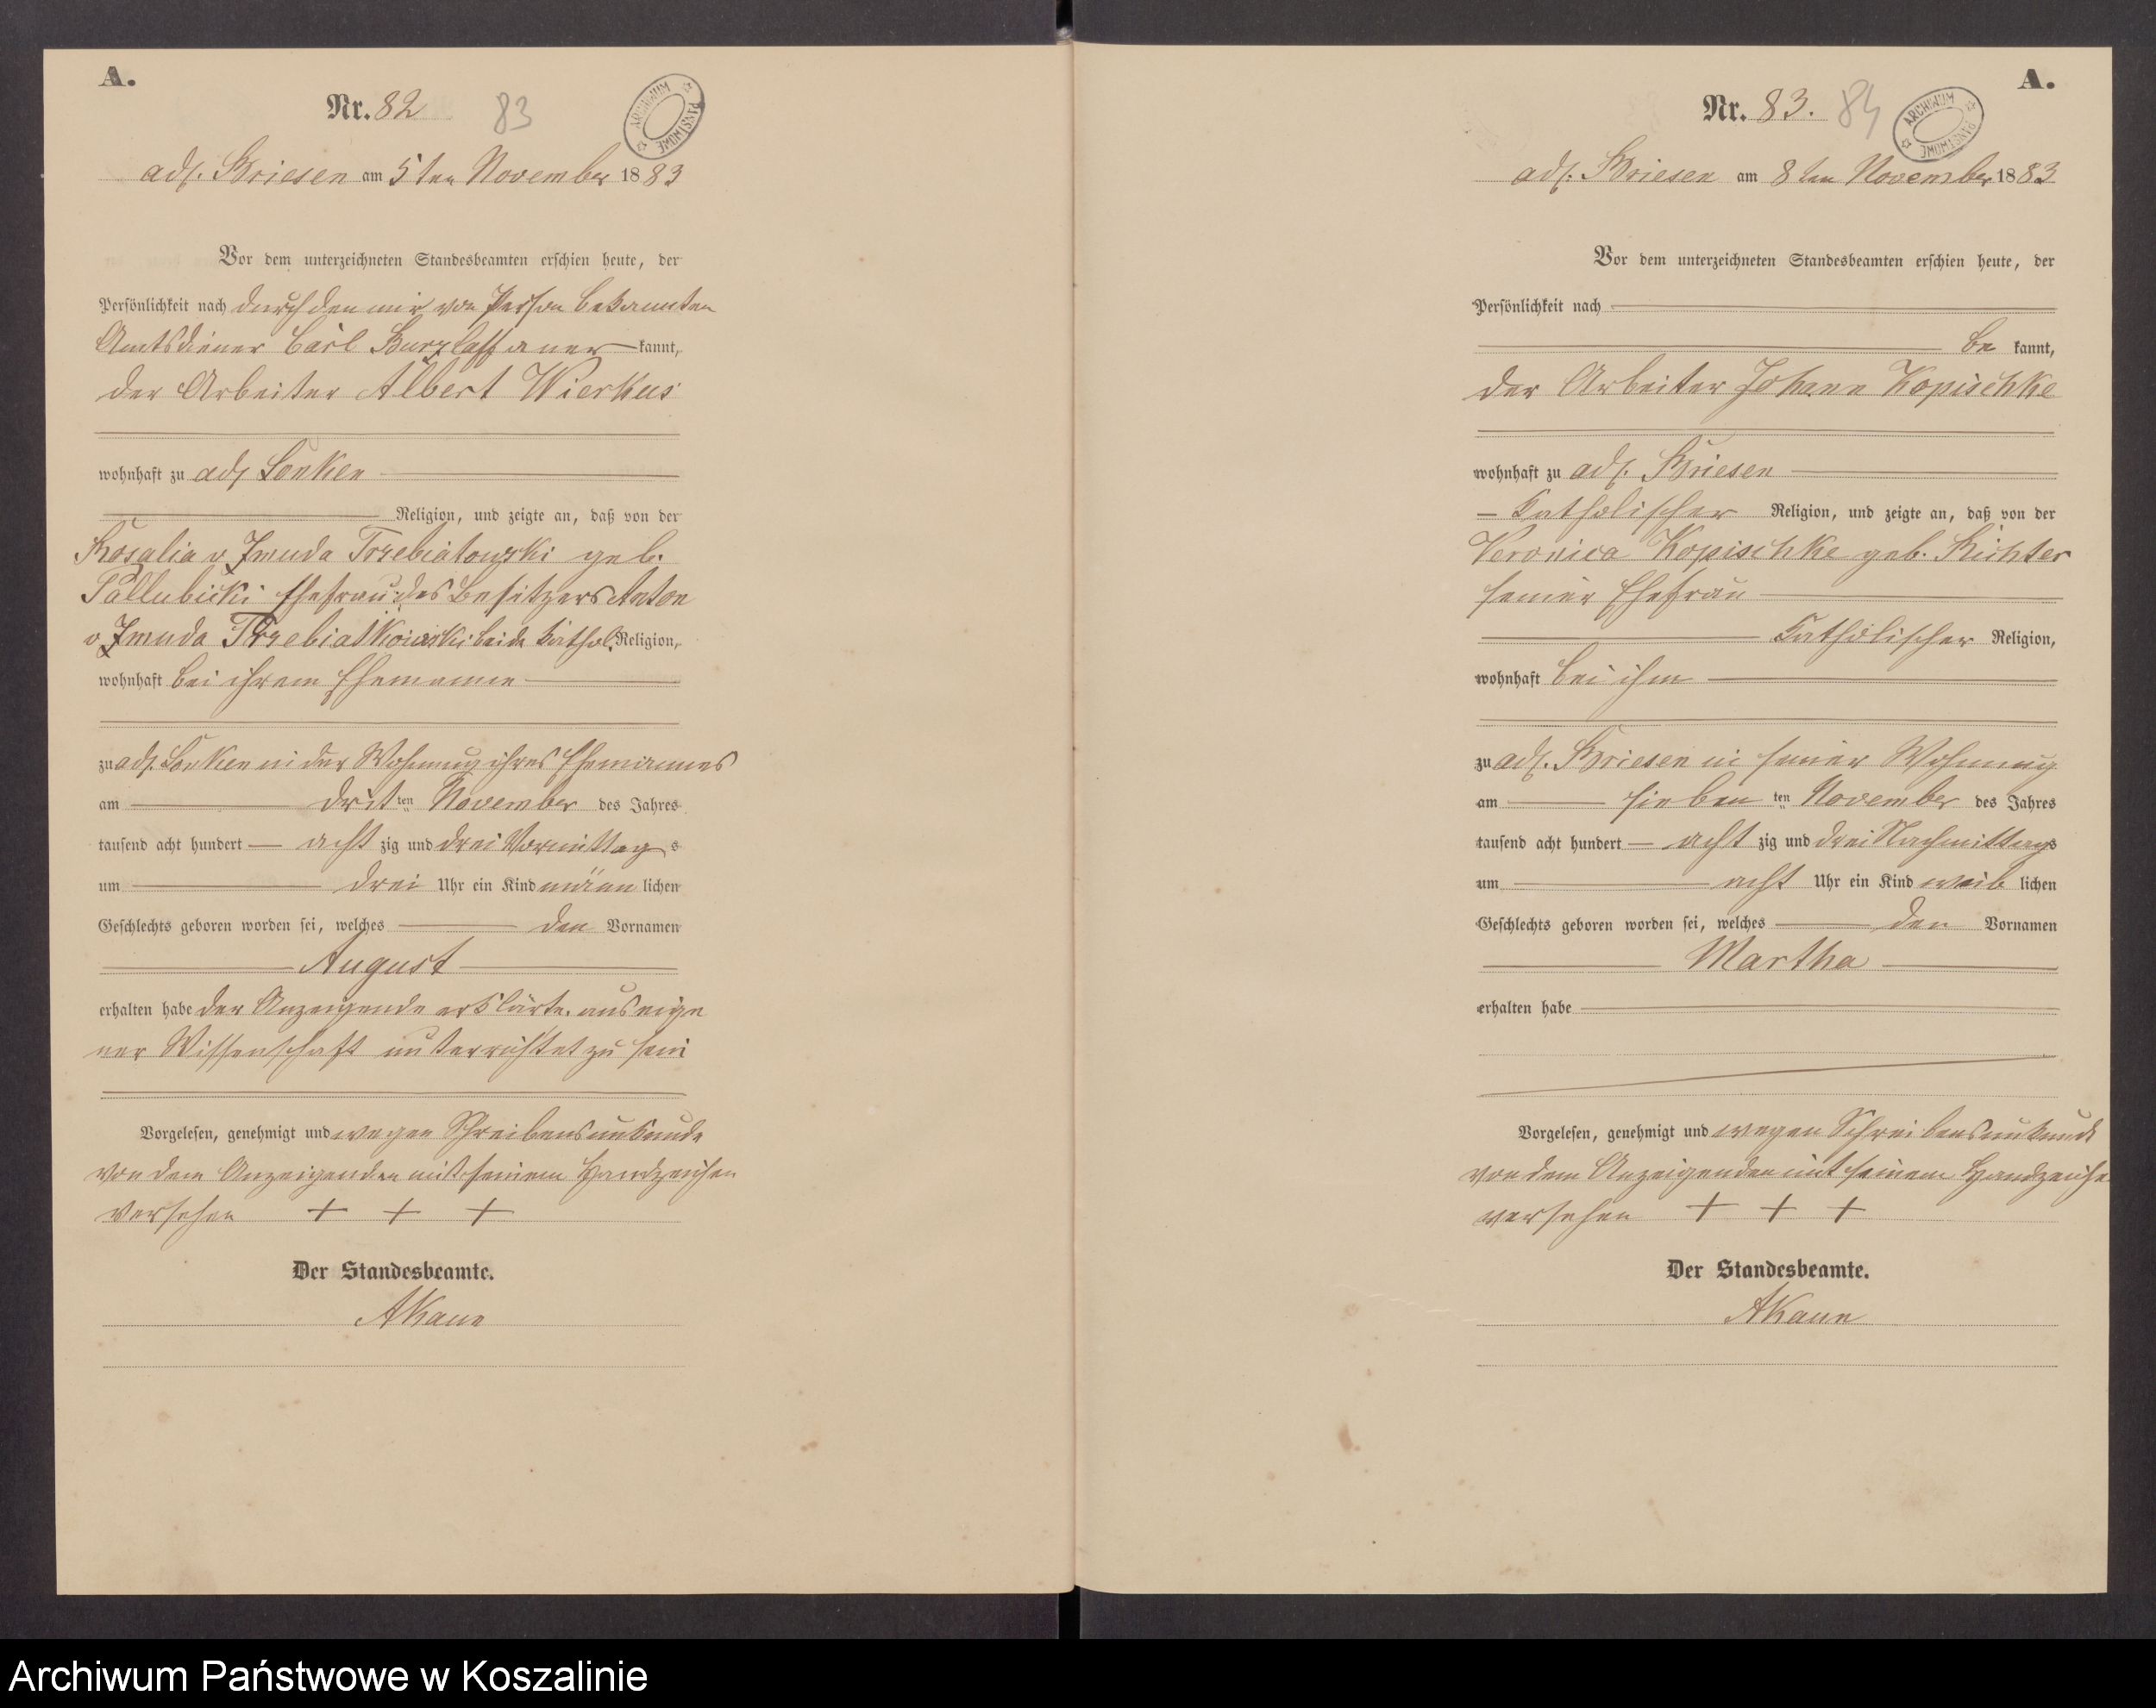 A.
Nr. 82 83
ARCHIWUM PAŃSTWOWE
adl. Briesen am 5ten November 1883
Vor dem unterzeichneten Standesbeamten erschien heute, der
Persönlichkeit nach durch den mir von Person bekannten
Amtsdiener Carl Burzlaff aner kannt,
der Arbeiter Albert Wierkus
wohnhaft zu adl Lonken
Religion, und zeigte an, daß von der
Rosalia v Zmuda Trzebiatowski geb.
Pallubicki Ehefrau des Besitzers Anton
v Zmuda Trzebiatkowski beide kathol. Religion,
wohnhaft bei ihrem Ehemanne
zu adl. Lonken in der Wohnung ihres Ehemannes
am drit ten November des Jahres
tausend acht hundert acht zig und drei Vormittag s
um drei Uhr ein Kind männ lichen
Geschlechts geboren worden sei, welches den Vornamen
August
erhalten habe der Anzeigende erklärte. aus eige
ner Wissenschaft unterrichtet zu sein
Vorgelesen, genehmigt und wegen Schreibensunkunde
von dem Anzeigenden mit seinem Handzeichen
versehen + + +
Der Standesbeamte.
AKaun
A.
Nr. 83. 84
ARCHIWUM PAŃSTWOWE
adl. Briesen am 8ten November 1883
Vor dem unterzeichneten Standesbeamten erschien heute, der
Persönlichkeit nach
be kannt,
der Arbeiter Johann Kopischke
wohnhaft zu adl. Briesen
katholischer Religion, und zeigte an, daß von der
Veronica Kopischke geb. Richter
seiner Ehefrau
katholischer Religion,
wohnhaft bei ihm
zu adl. Briesen in seiner Wohnung
am sieben ten November des Jahres
tausend acht hundert acht zig und drei Nachmittags
um acht Uhr ein Kind weib lichen
Geschlechts geboren worden sei, welches den Vornamen
Martha
erhalten habe
Vorgelesen, genehmigt und wegen Schreibensunkunde
von dem Anzeigenden mit seinem Handzeichen
versehen + + +
Der Standesbeamte.
AKaun
Archiwum Państwowe w Koszalinie